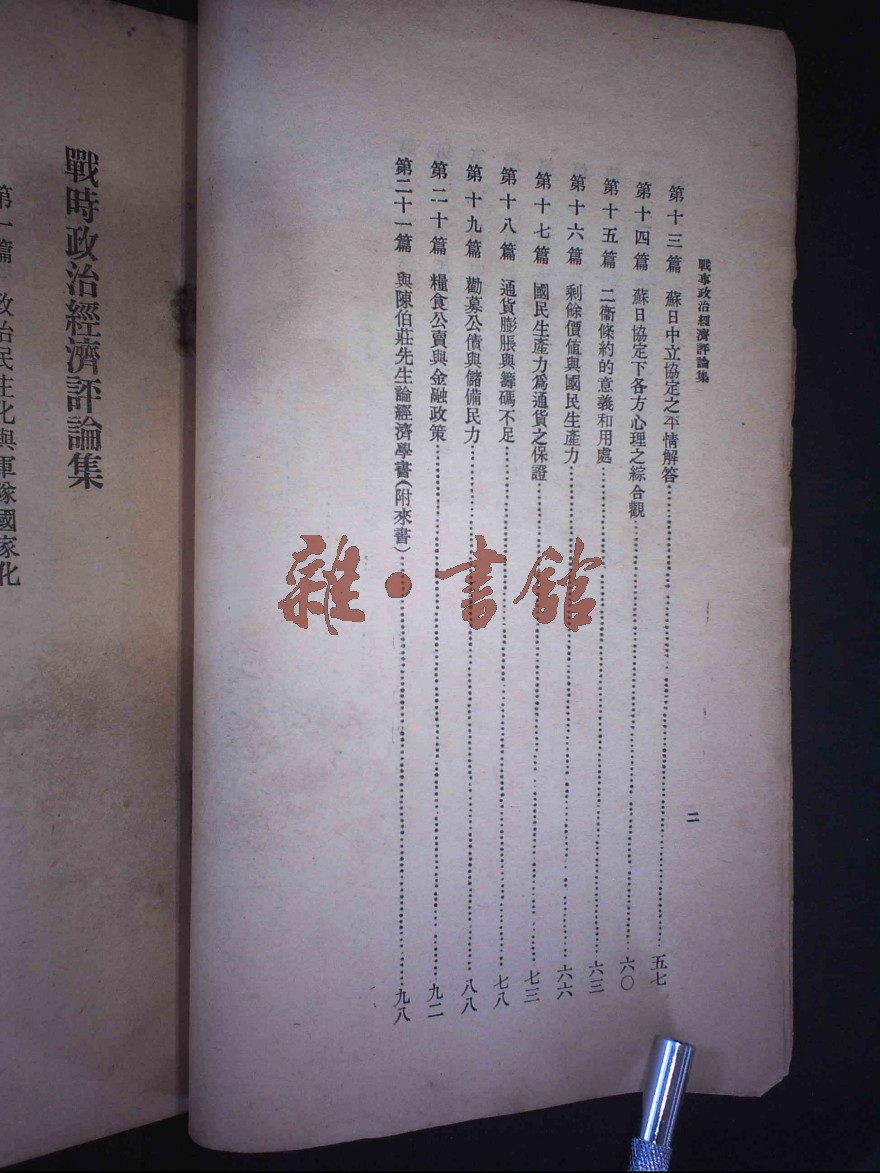 戰事政治經濟評論集
二
第十三篇 蘇日中立協定之平情解答⋯⋯五七
第十四篇 蘇日協定下各方心理之綜合觀⋯⋯六〇
第十五篇 二衞條約的意義和用處⋯⋯六三
第十六篇 剩餘價值與國民生產力⋯⋯六六
第十七篇 國民生產力爲通貨之保證⋯⋯七三
第十八篇 通貨膨脹與籌碼不足⋯⋯七八
第十九篇 勸募公債與儲備民力⋯⋯八八
第二十篇 糧食公賣與金融政策⋯⋯九二
第二十一篇 與陳伯莊先生論經濟學書(附來書)⋯⋯九八
雜·書館
戰時政治經濟評論集
第一篇 政治民主化與軍隊國家化